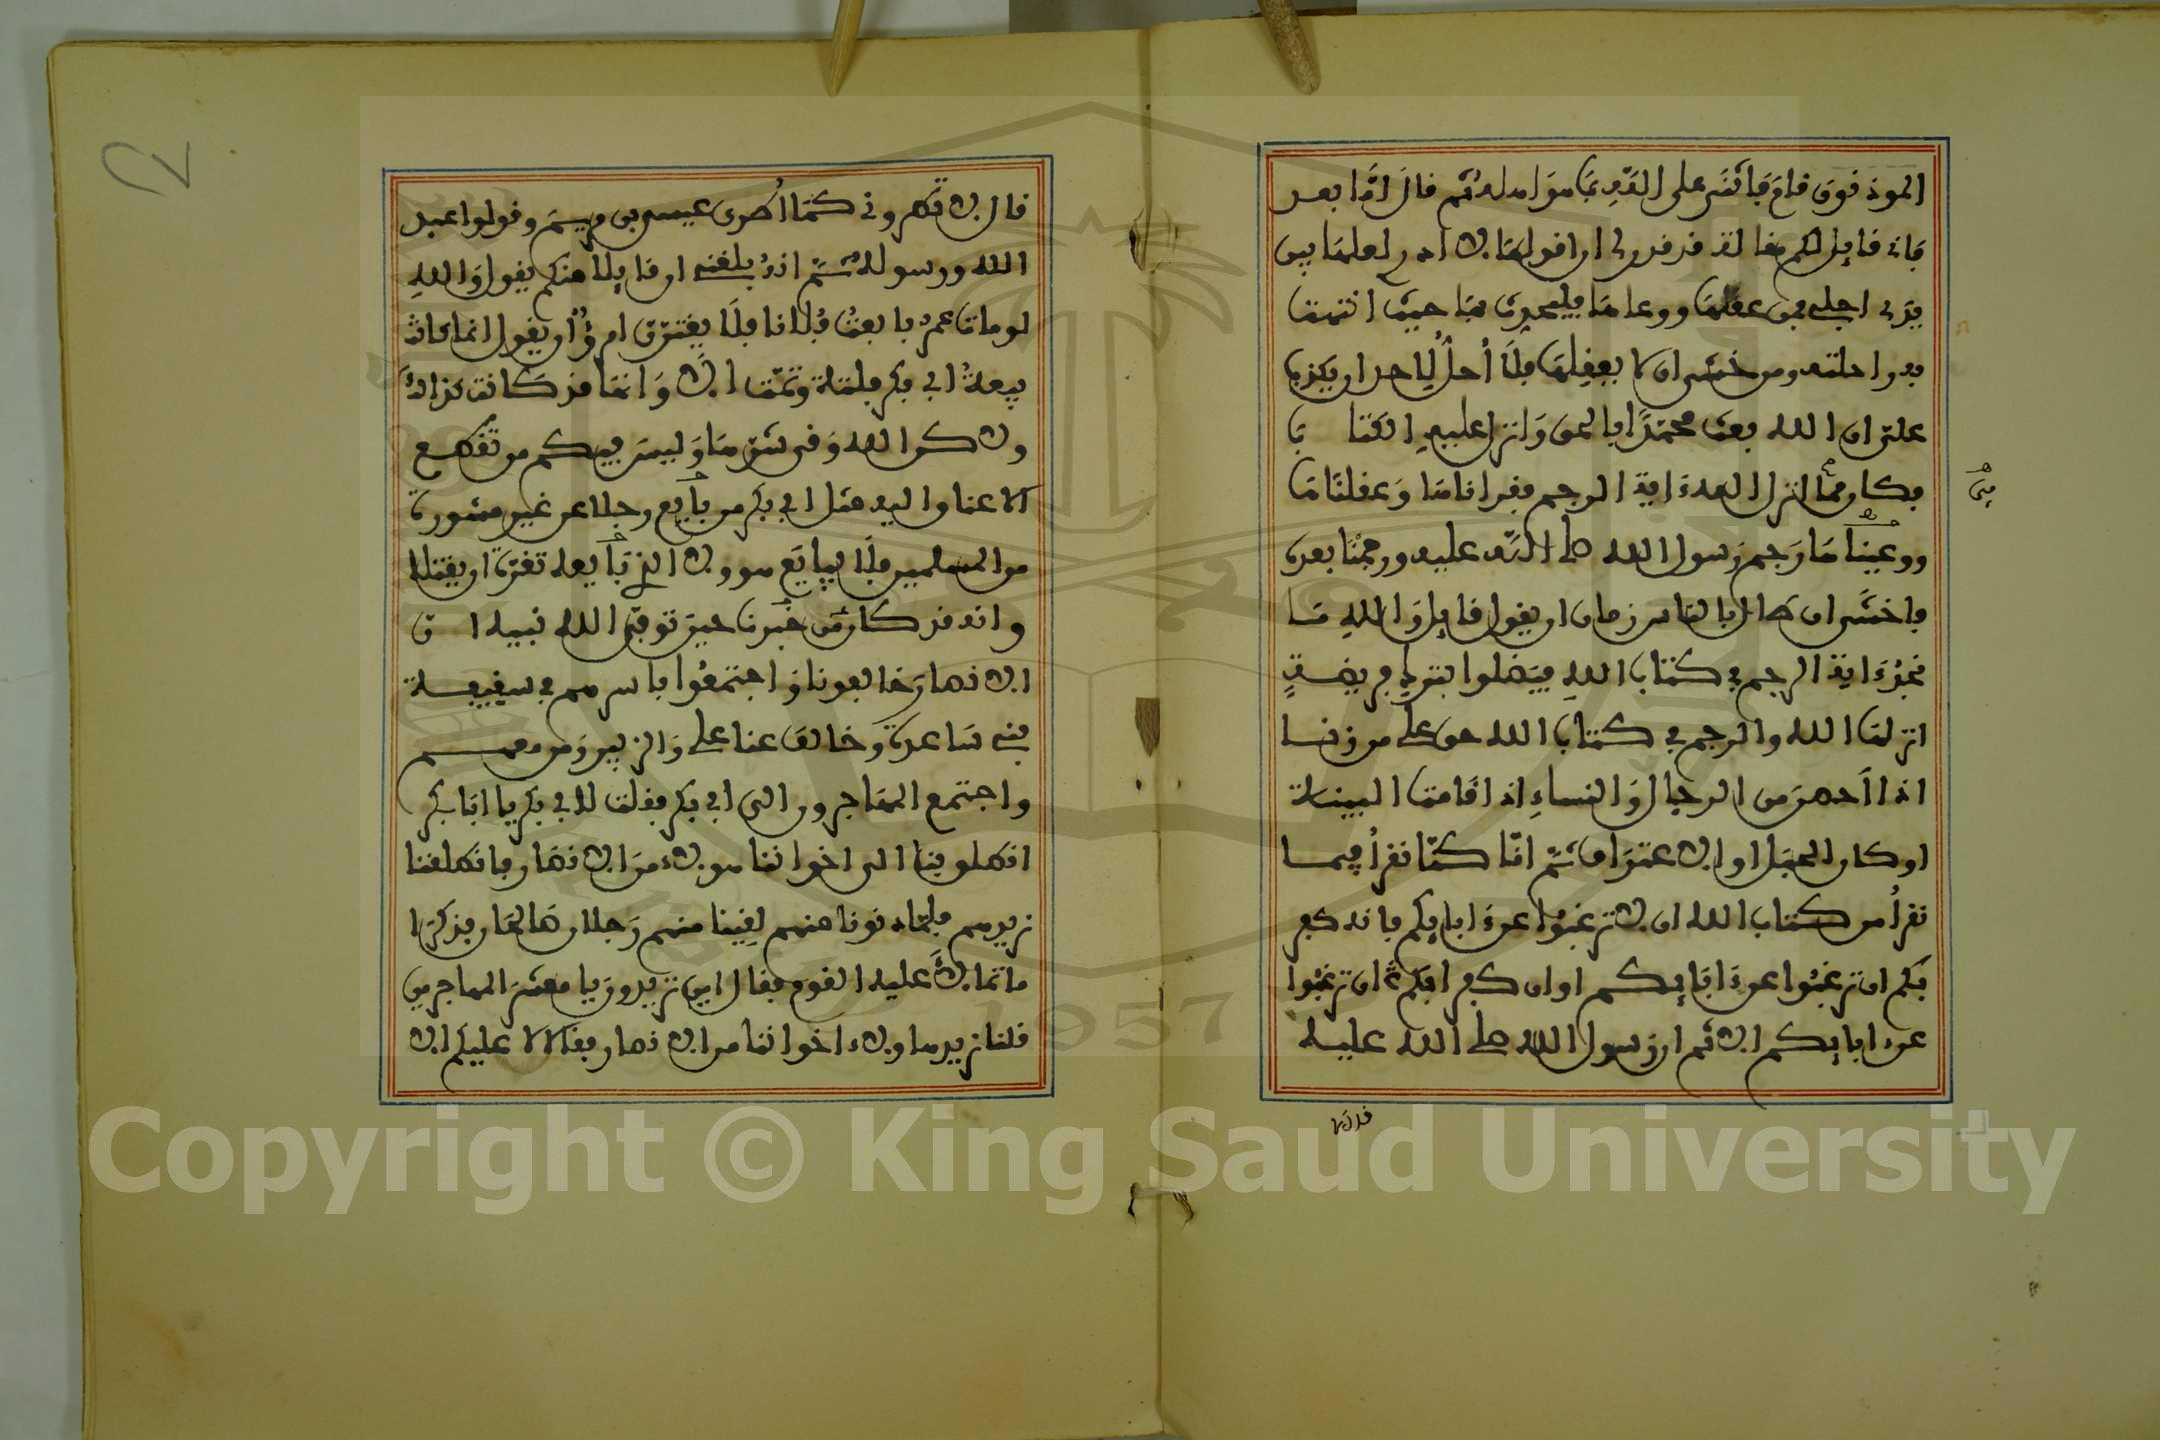 الموذنون قام فاثنى على الله بما هو اهله ثم قال اما بعد
فاني قايل لكم مقالة قد قدر لي ان اقولها لا ادري لعلها بين
يدي اجلي فمن عقلها ووعاها فليحدث بها حيث انتهت
به راحلته ومن خشي ان لا يعقلها فلا احل لاحد ان يكذب
علي ان الله بعث محمدا بالحق وانزل عليه الكتاب
فكان مما انزل الله ءاية الرجم فقراناها وعقلناها
ووعيناها رجم رسول الله صلى الله عليه ورجمنا بعده
فاخشى ان طال بالناس زمان ان يقول قايل والله ما
نجد ءاية الرجم في كتاب الله فيضلوا بترك فريضة
انزلها الله والرجم في كتاب الله حق على من زنا
اذا احصن من الرجال والنساء اذا قامت البينة
او كان الحبل او الاعتراف ثم انا كنا نقرا فيما
نقرا من كتاب الله ان لا ترغبوا عن ءابايكم فانه كفر
بكم ان ترغبوا عن ءابايكم او ان كفرا بكم ان ترغبوا
عن ءابايكم الا ثم ان رسول الله صلى الله عليه
قال لا تطروني كما اطري عيسى بن مريم وقولوا عبد
الله ورسوله ثم انه بلغني ان قايلا منكم يقول والله
لو مات عمر بايعت فلانا فلا يغترن امرؤ ان يقول انما كانت
بيعة ابي بكر فلتة وتمت الا وانها قد كانت كذلك
ولاكن الله وقى شرها وليس فيكم من تقطع
الاعناق اليه مثل ابي بكر من بايع رجلا عن غير مشورة
من المسلمين فلا يبايع هو ولا الذي بايعه تغرة ان يقتلا
وانه قد كان من خبرنا حين توفى الله نبيه ان
الانصار خالفونا واجتمعوا باسرهم في سقيفة
بني ساعدة وخالف عنا علي والزبير ومن معهم
واجتمع المهاجرون الى ابي بكر فقلت لابي بكر يا ابا بكر
انطلق بنا الى اخواننا هولاء من الانصار فانطلقنا
نريدهم فلما دنونا منهم لقينا منهم رجلان صالحان فذكرا
ما تمالا عليه القوم فقال اين تريدون يا معشر المهاجرين
قلنا نريد هاولاء اخواننا من الانصار فقالا لا عليكم الا